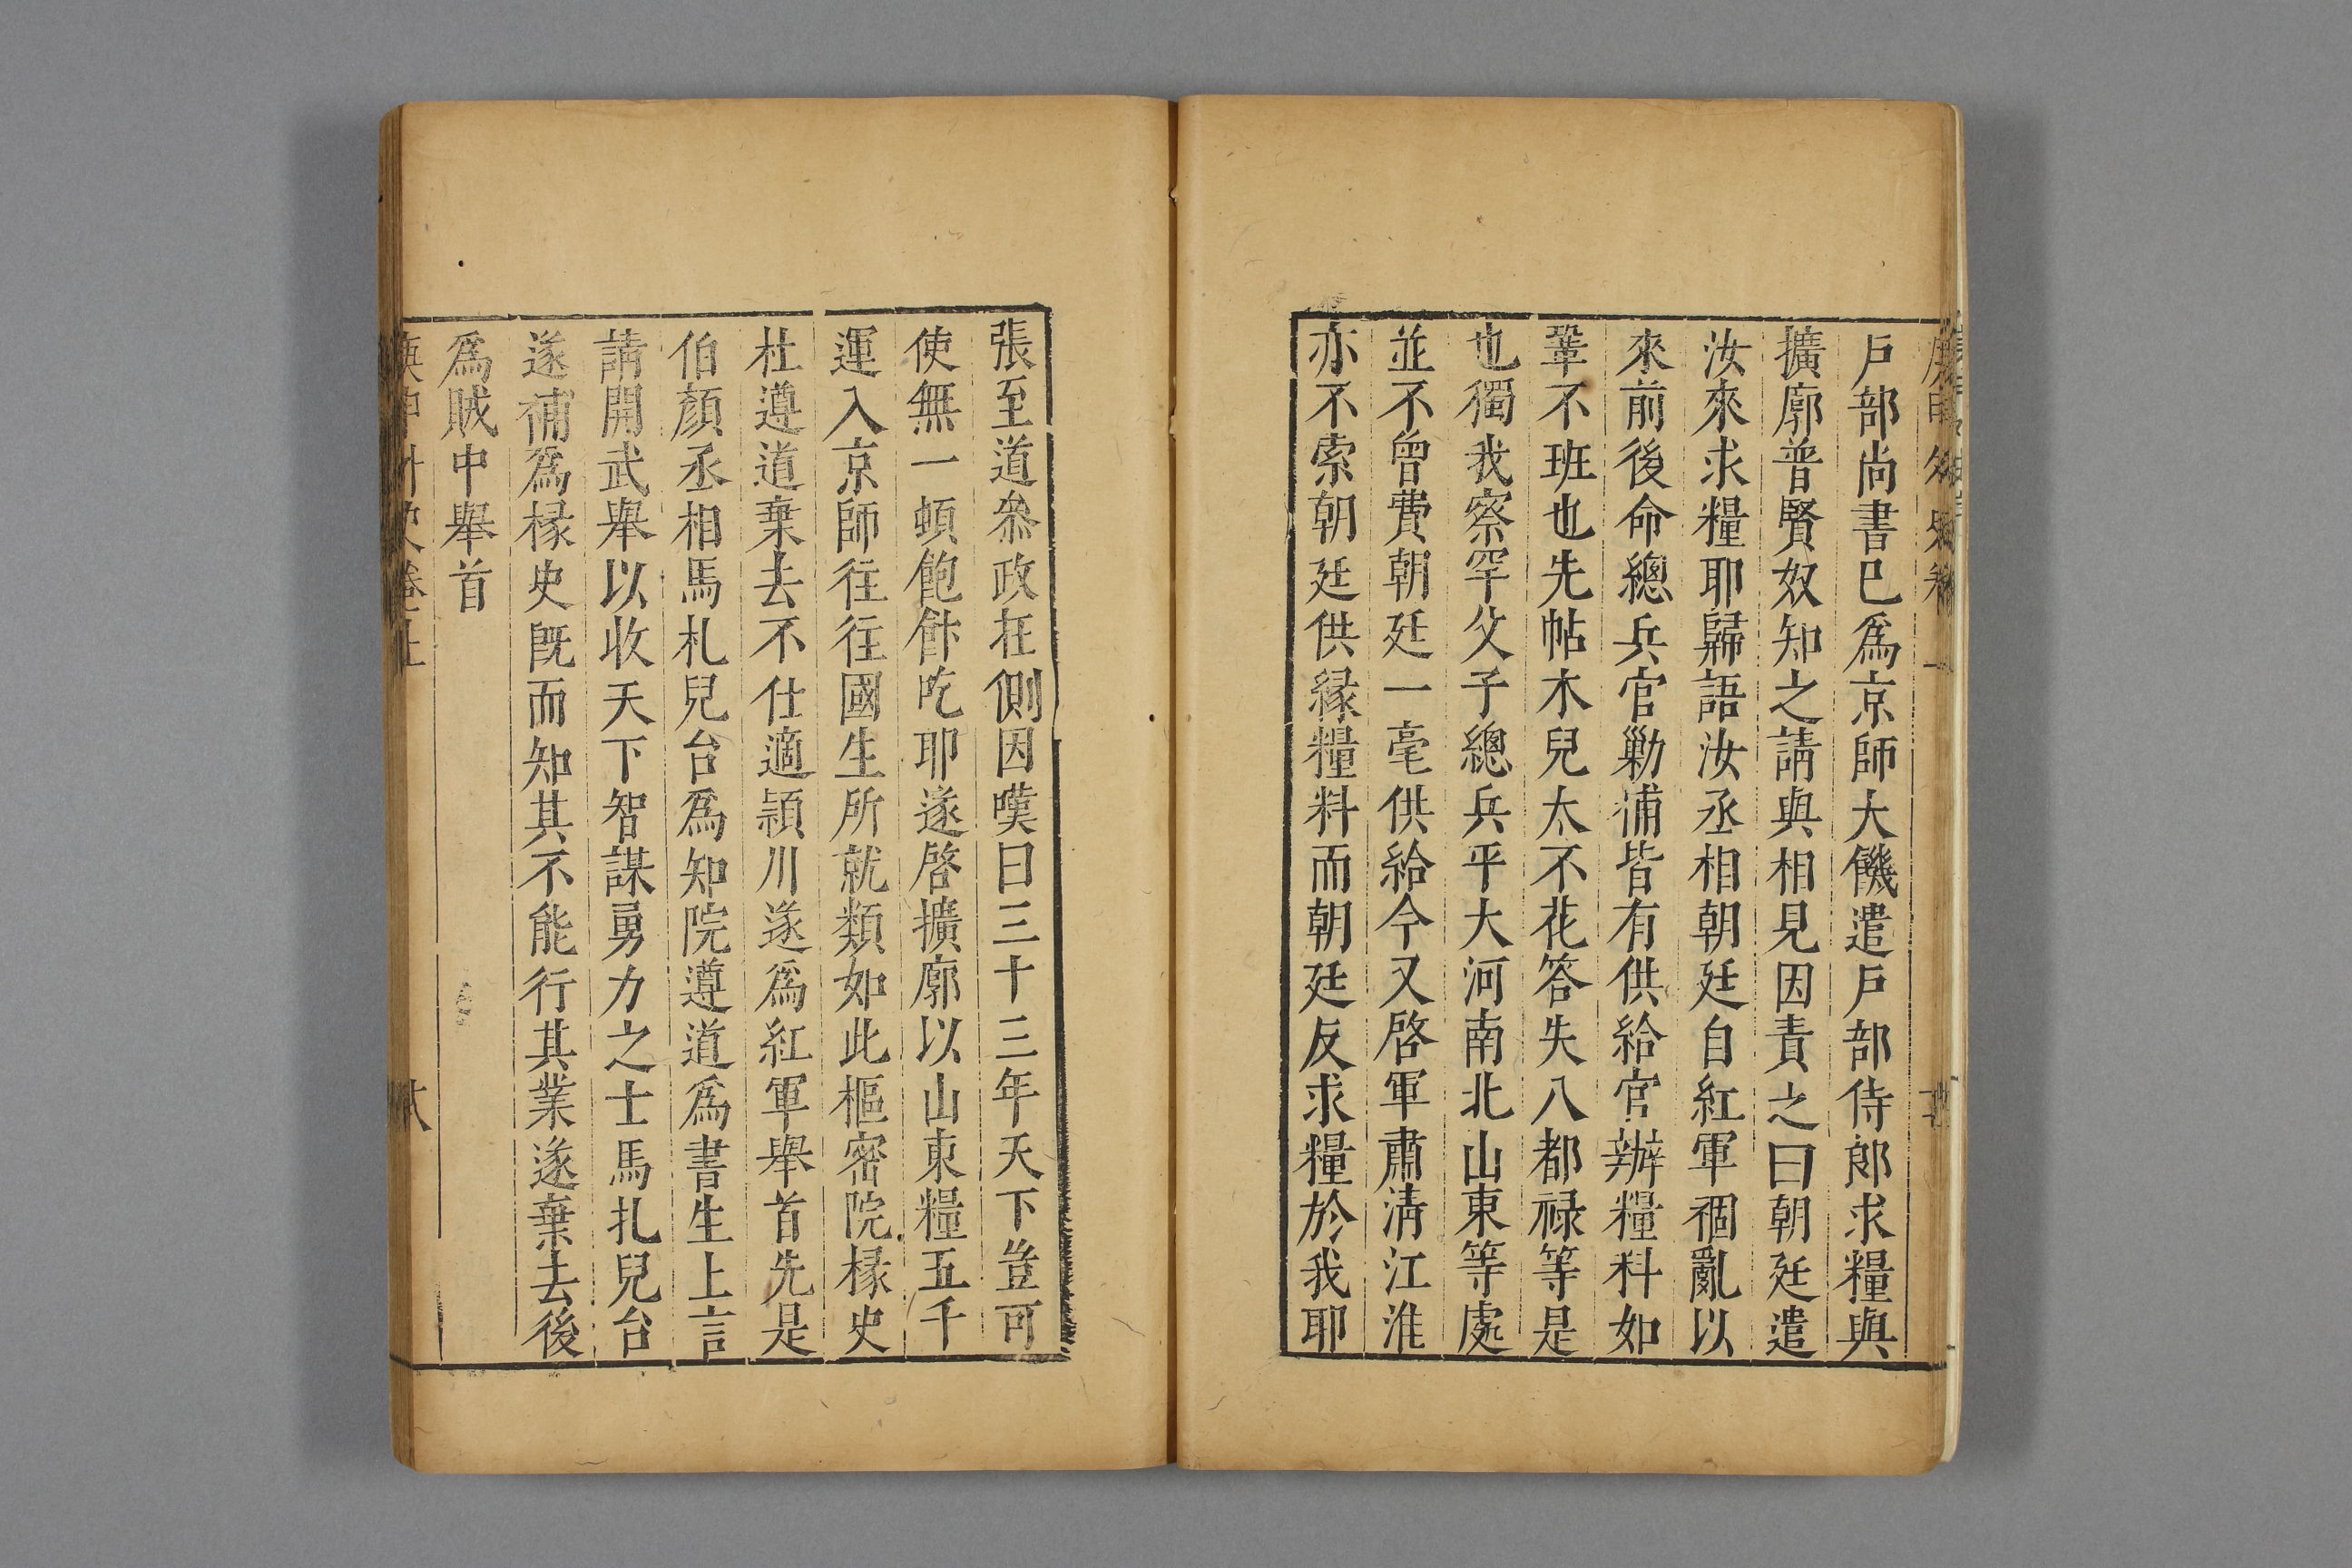 戶部尚書巳爲京師大饑遣戶部侍郎求糧與
擴廓普賢奴知之請與相見因責之曰朝廷遣
汝來求糧耶歸語汝丞相朝廷自紅軍禍亂以
來前後命總兵官勦浦皆有供給官辦糧料如
鞏不班也先帖木兒太不花答失八都禄等是
也獨我察罕父子總兵平大河南北山東等處
並不曾費朝廷一毫供給今又啓軍肅淸江淮
亦不索朝廷供縁糧料而朝廷反求糧於我耶
張至道叅政在側因嘆曰三十三年天下豈可
使無一頓飽餅吃耶遂啓擴廓以山東糧五千
運入京師往往國生所就類如此樞密院椽史
杜遵道棄去不仕適頴川遂爲紅軍舉首先是
伯顏丞相馬札兒台爲知院遵道爲書生上言
請開武舉以收天下智謀勇力之士馬扎兒台
遂補爲椽史旣而知其不能行其業遂棄去後
爲賊中舉首